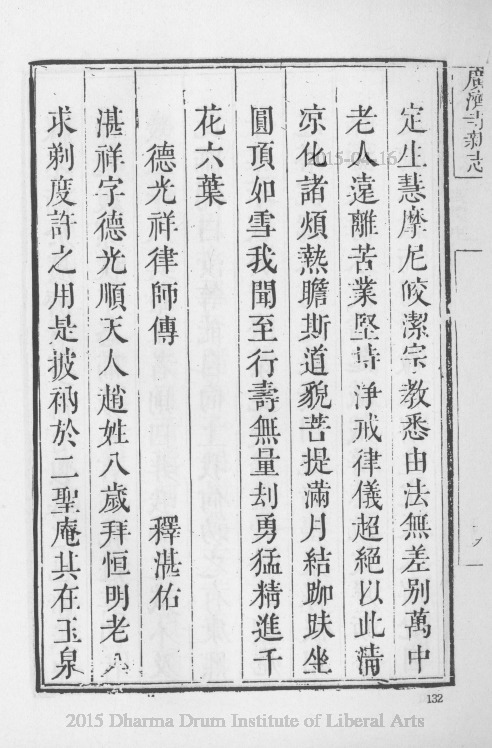 廣濟寺新志
定生慧摩尼皎潔宗教悉由法無差別萬中
老人遠離苦業堅持淨戒律儀超絕以此清
凉化諸煩熱瞻斯道貌菩提滿月結跏趺坐
圓頂如雪我聞至行壽無量刦勇猛精進千
花六葉
德光祥律師傳 釋湛佑
湛祥字德光順天人趙姓八歲拜恒明老人
求剃度許之用是披衲於二聖庵其在玉泉
2015-04-16
132
2015 Dharma Drum Institute of Liberal Arts